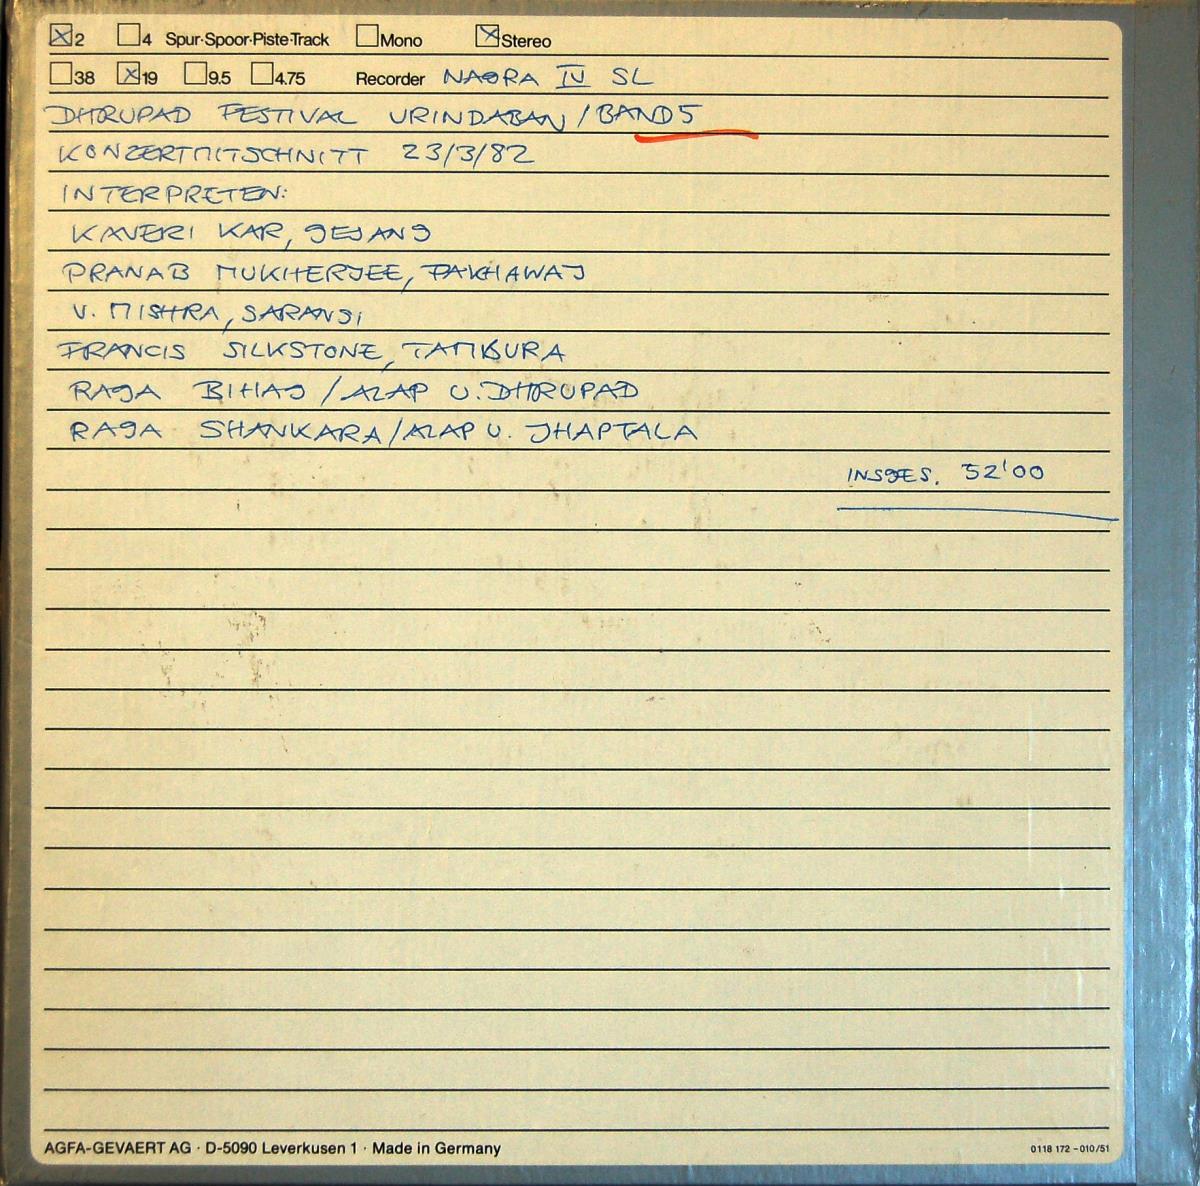 ☒2 ☐4 Spur·Spoor·Piste·Track ☐Mono ☒Stereo
☐38 ☒19 ☐9.5 ☐4.75 Recorder NAGRA IV SL
DHRUPAD FESTIVAL VRINDABAN / BAND 5
KONZERTMITSCHNITT 23/3/82
INTERPRETEN:
KAVERI KAR, GESANG
PRANAB MUKHERJEE, PAKHAWAJ
V. MISHRA, SARANGI
FRANCIS SILKSTONE, TAMBURA
RAGA BIHAG / ALAP U. DHRUPAD
RAGA SHANKARA / ALAP U. JHAPTALA
INSGES. 52'00
AGFA-GEVAERT AG · D-5090 Leverkusen 1 · Made in Germany
0118 172 - 010/51